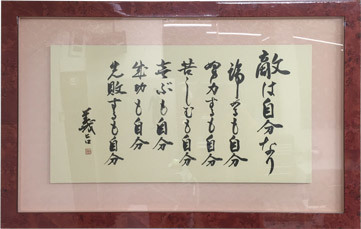 敵は自分なり
諦めるも自分
努力するも自分
苦しむも自分
喜ぶも自分
成功も自分
失敗するも自分